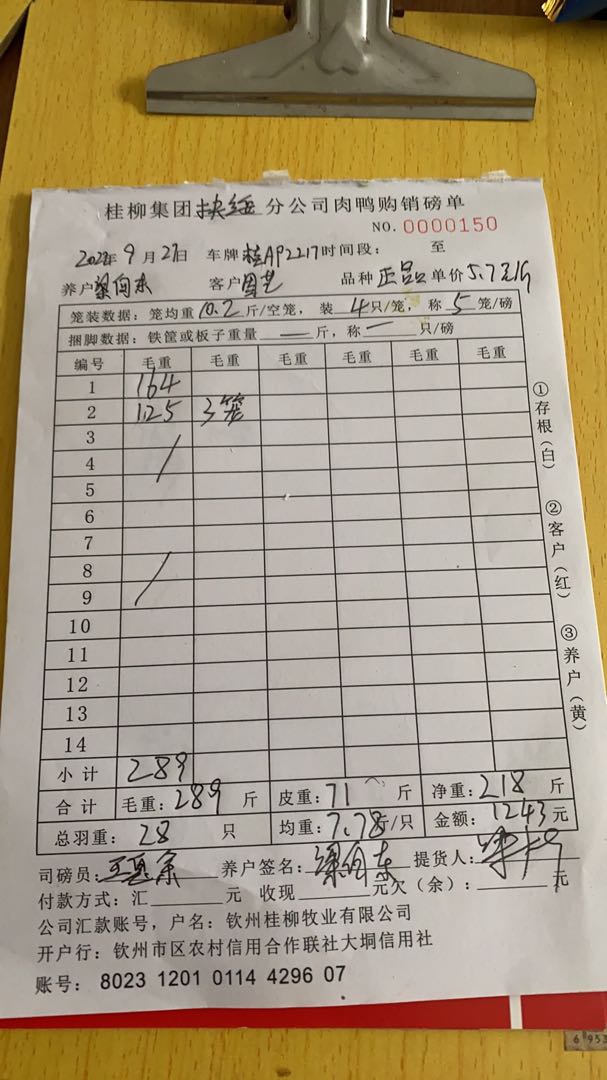 桂柳集团扶绥分公司肉鸭购销磅单
NO. 0000150
9月27日 车牌:桂AP2217时间段: 至
养户:梁向东 客户: 品种 正品 单价5.7元/斤
笼装数据:笼均重10.2斤/空笼,装4只/笼,称5笼/磅
捆脚数据:铁筐或板子重量 — 斤,称 — 只/磅
编号 毛重 毛重 毛重 毛重 毛重 毛重
1 164
2 125 3笼
3
4
5
6
7
8
9
10
11
12
13
14
小计 289
合计 毛重:289斤 皮重:71斤 净重:218斤
总羽重:28只 均重:7.78斤/只 金额:1243元
司磅员: 养户签名:梁向东 提货人:
付款方式:汇 元 收现 元欠(余): 元
公司汇款账号,户名:钦州桂柳牧业有限公司
开户行:钦州市区农村信用合作联社大垌信用社
账号:8023 1201 0114 4296 07
①存根(白)
②客户(红)
③养户(黄)
6 953